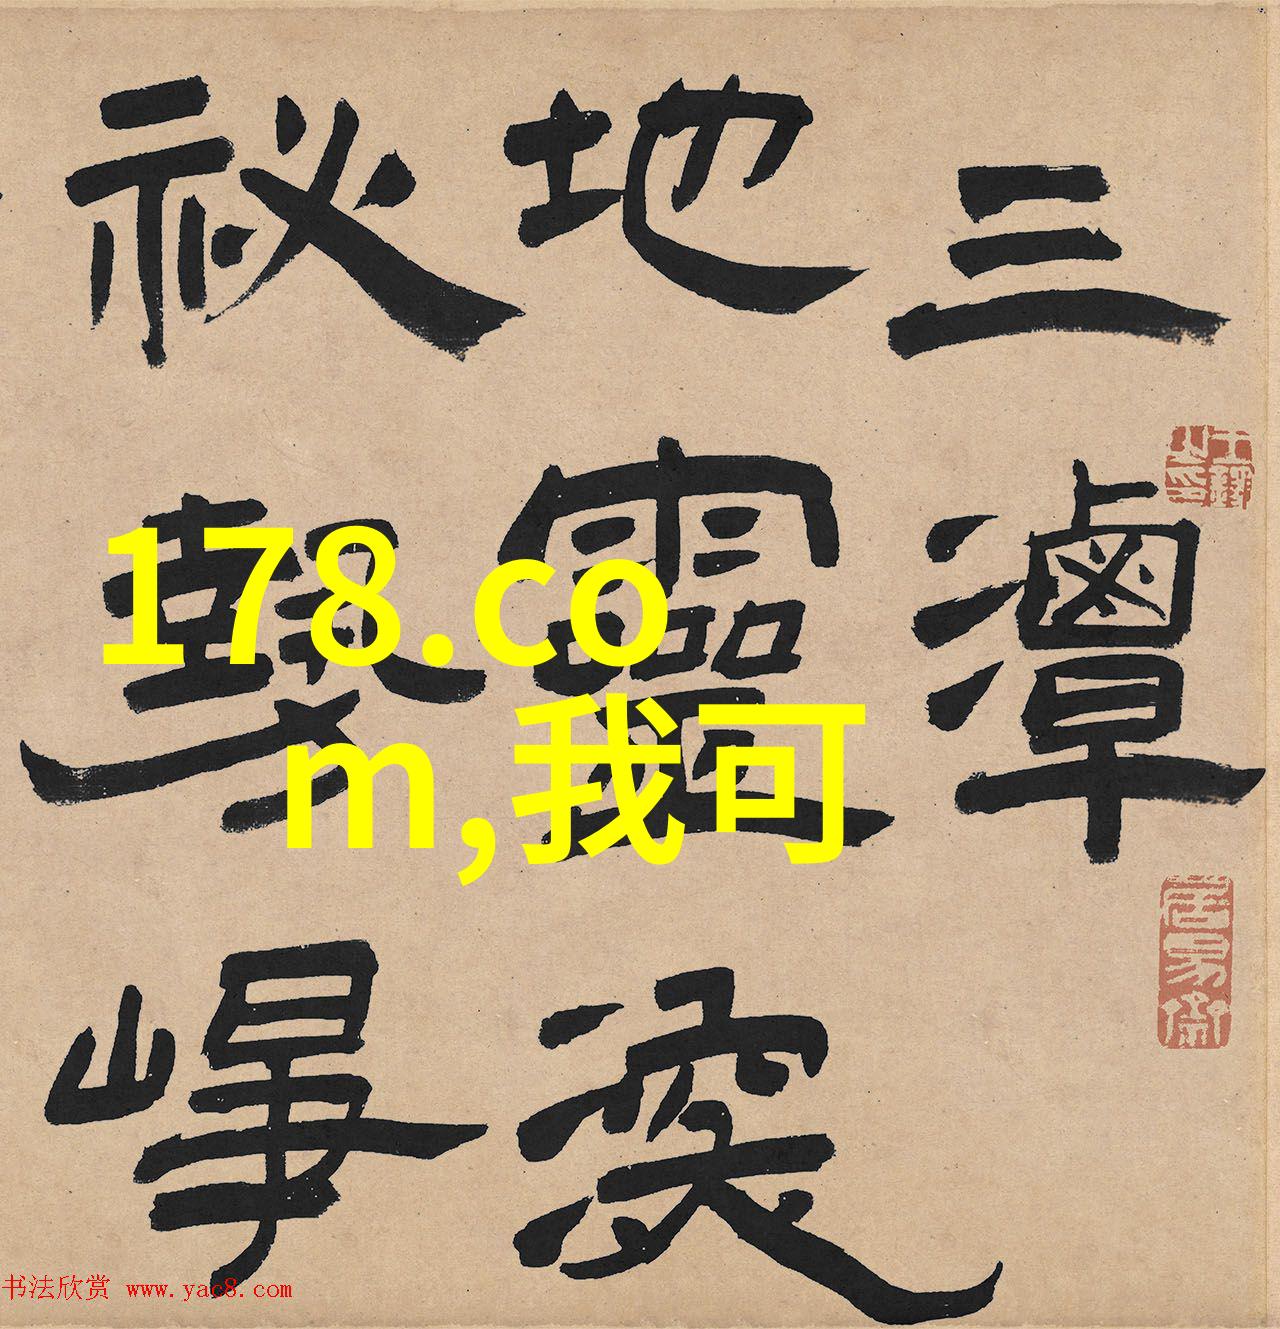 三潭
地靈
祕
178.co
m,我可
书法欣赏 www.yac8.com